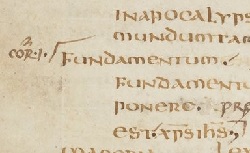 INAPOCALYPS
MUNDUMTAM
COR·I· FUNDAMENTUM·
FUNDAMENTU
PONERE· pre
EST·XPSIHS·